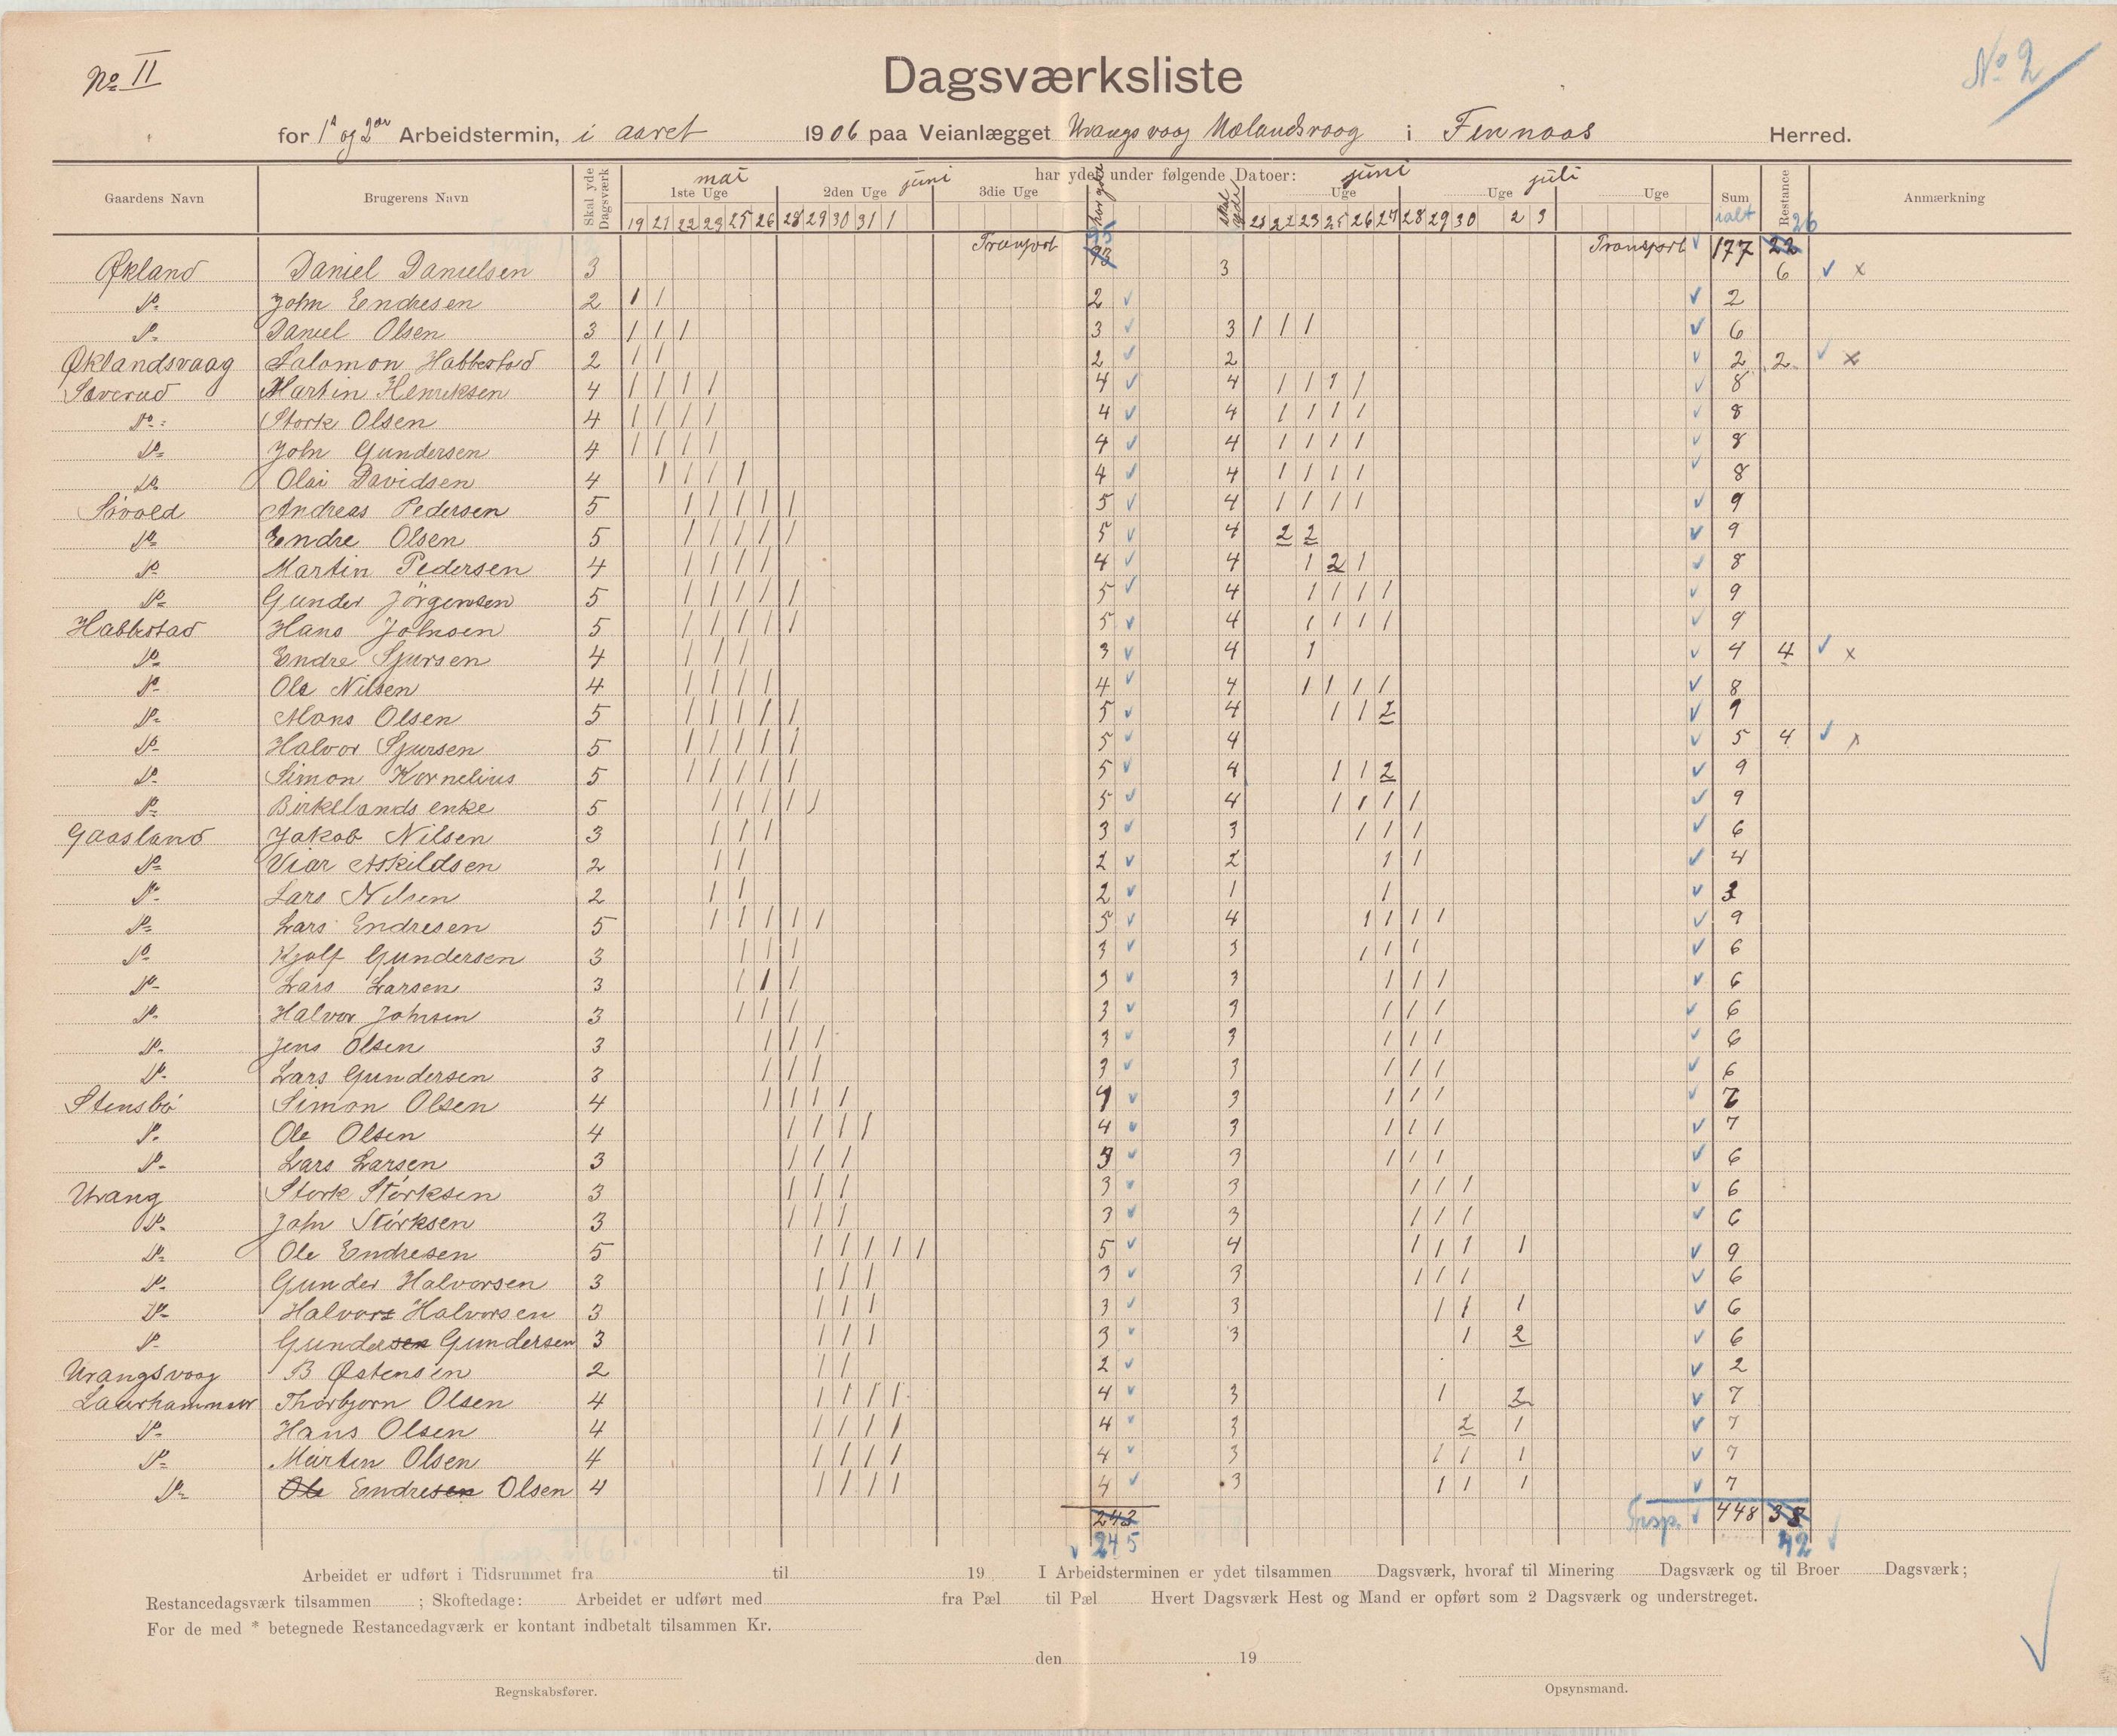 No II
No 2
Dagsværksliste
for 1ste og 2den Arbeidstermin, i aaret 1906 paa Veianlægget Urangsvaag Mælandsvaag i Finnaas Herred.
Gaardens Navn Brugerens Navn Skal yde Dagsværk har ydet under følgende Datoer: Sum ialt Restance Anmærkning
mai juni juni juli
1ste Uge 2den Uge 3die Uge skal yde Uge Uge Uge
19 21 22 23 25 26 28 29 30 31 1 21 22 23 25 26 27 28 29 30 2 3
Transport 93 95 Transport 177 22 26
Økland Daniel Danielsen 3 3 6 x
Do John Endresen 2 1 1 2 2
Do Daniel Olsen 3 1 1 1 3 3 1 1 1 6
Øklandsvaag Salomon Habbestad 2 1 1 2 2 2 2 x
Saverud Martin Henriksen 4 1 1 1 1 4 4 1 1 1 1 8
Do Stork Olsen 4 1 1 1 1 4 4 1 1 1 1 8
Do John Gundersen 4 1 1 1 1 4 4 1 1 1 1 8
Do Olai Davidsen 4 1 1 1 1 4 4 1 1 1 1 8
Søvold Andreas Pedersen 5 1 1 1 1 1 5 4 1 1 1 1 9
Do Endre Olsen 5 1 1 1 1 1 5 4 2 2 9
Do Martin Pedersen 4 1 1 1 1 4 4 1 2 1 8
Do Gunder Jörgensen 5 1 1 1 1 1 5 4 1 1 1 1 9
Habbestad Hans Johnsen 5 1 1 1 1 1 5 4 1 1 1 1 9
Do Endre Sjursen 4 1 1 1 3 4 1 4 4 x
Do Ole Nilsen 4 1 1 1 1 4 4 1 1 1 1 8
Do Mons Olsen 5 1 1 1 1 1 5 4 1 1 2 9
Do Halvor Sjursen 5 1 1 1 1 1 5 4 5 4 x
Do Simon Kornelius 5 1 1 1 1 1 5 4 1 1 2 9
Do Birkelands enke 5 1 1 1 1 1 5 4 1 1 1 1 9
Gaasland Jakob Nilsen 3 1 1 1 3 3 1 1 1 6
Do Viar Askildsen 2 1 1 2 2 1 1 4
Do Lars Nilsen 2 1 1 2 1 1 3
Do Lars Endresen 5 1 1 1 1 1 5 4 1 1 1 1 9
Do Kjolf Gundersen 3 1 1 1 3 3 1 1 1 6
Do Lars Larsen 3 1 1 1 3 3 1 1 1 6
Do Halvor Johnsen 3 1 1 1 3 3 1 1 1 6
Do Jens Olsen 3 1 1 1 3 3 1 1 1 6
Do Lars Gundersen 3 1 1 1 3 3 1 1 1 6
Stensbø Simon Olsen 4 1 1 1 1 4 3 1 1 1 7
Do Ole Olsen 4 1 1 1 1 4 3 1 1 1 7
Do Lars Larsen 3 1 1 1 3 3 1 1 1 6
Urang Stork Störksen 3 1 1 1 3 3 1 1 1 6
Do John Störksen 3 1 1 1 3 3 1 1 1 6
Do Ole Endresen 5 1 1 1 1 1 5 4 1 1 1 1 9
Do Gunder Halvorsen 3 1 1 1 3 3 1 1 1 6
Do Halvor Halvorsen 3 1 1 1 3 3 1 1 1 6
Do Gundersen Gundersen 3 1 1 1 3 3 1 2 6
Urangsvaag B Østensen 2 1 1 2 2
Laurhammer Thorbjorn Olsen 4 1 1 1 1 4 3 1 2 7
Do Hans Olsen 4 1 1 1 1 4 3 2 1 7
Do Martin Olsen 4 1 1 1 1 4 3 1 1 1 7
Do Ole Endresen Olsen 4 1 1 1 1 4 3 1 1 1 7
243 Trsp. 448 38
245 42
Arbeidet er udført i Tidsrummet fra til 19 I Arbeidsterminen er ydet tilsammen Dagsværk, hvoraf til Minering Dagsværk og til Broer Dagsværk;
Restancedagsværk tilsammen ; Skoftedage: Arbeidet er udført med fra Pæl til Pæl Hvert Dagsværk Hest og Mand er opført som 2 Dagsværk og understreget.
For de med * betegnede Restancedagværk er kontant indbetalt tilsammen Kr.
den 19
Regnskabsfører. Opsynsmand.